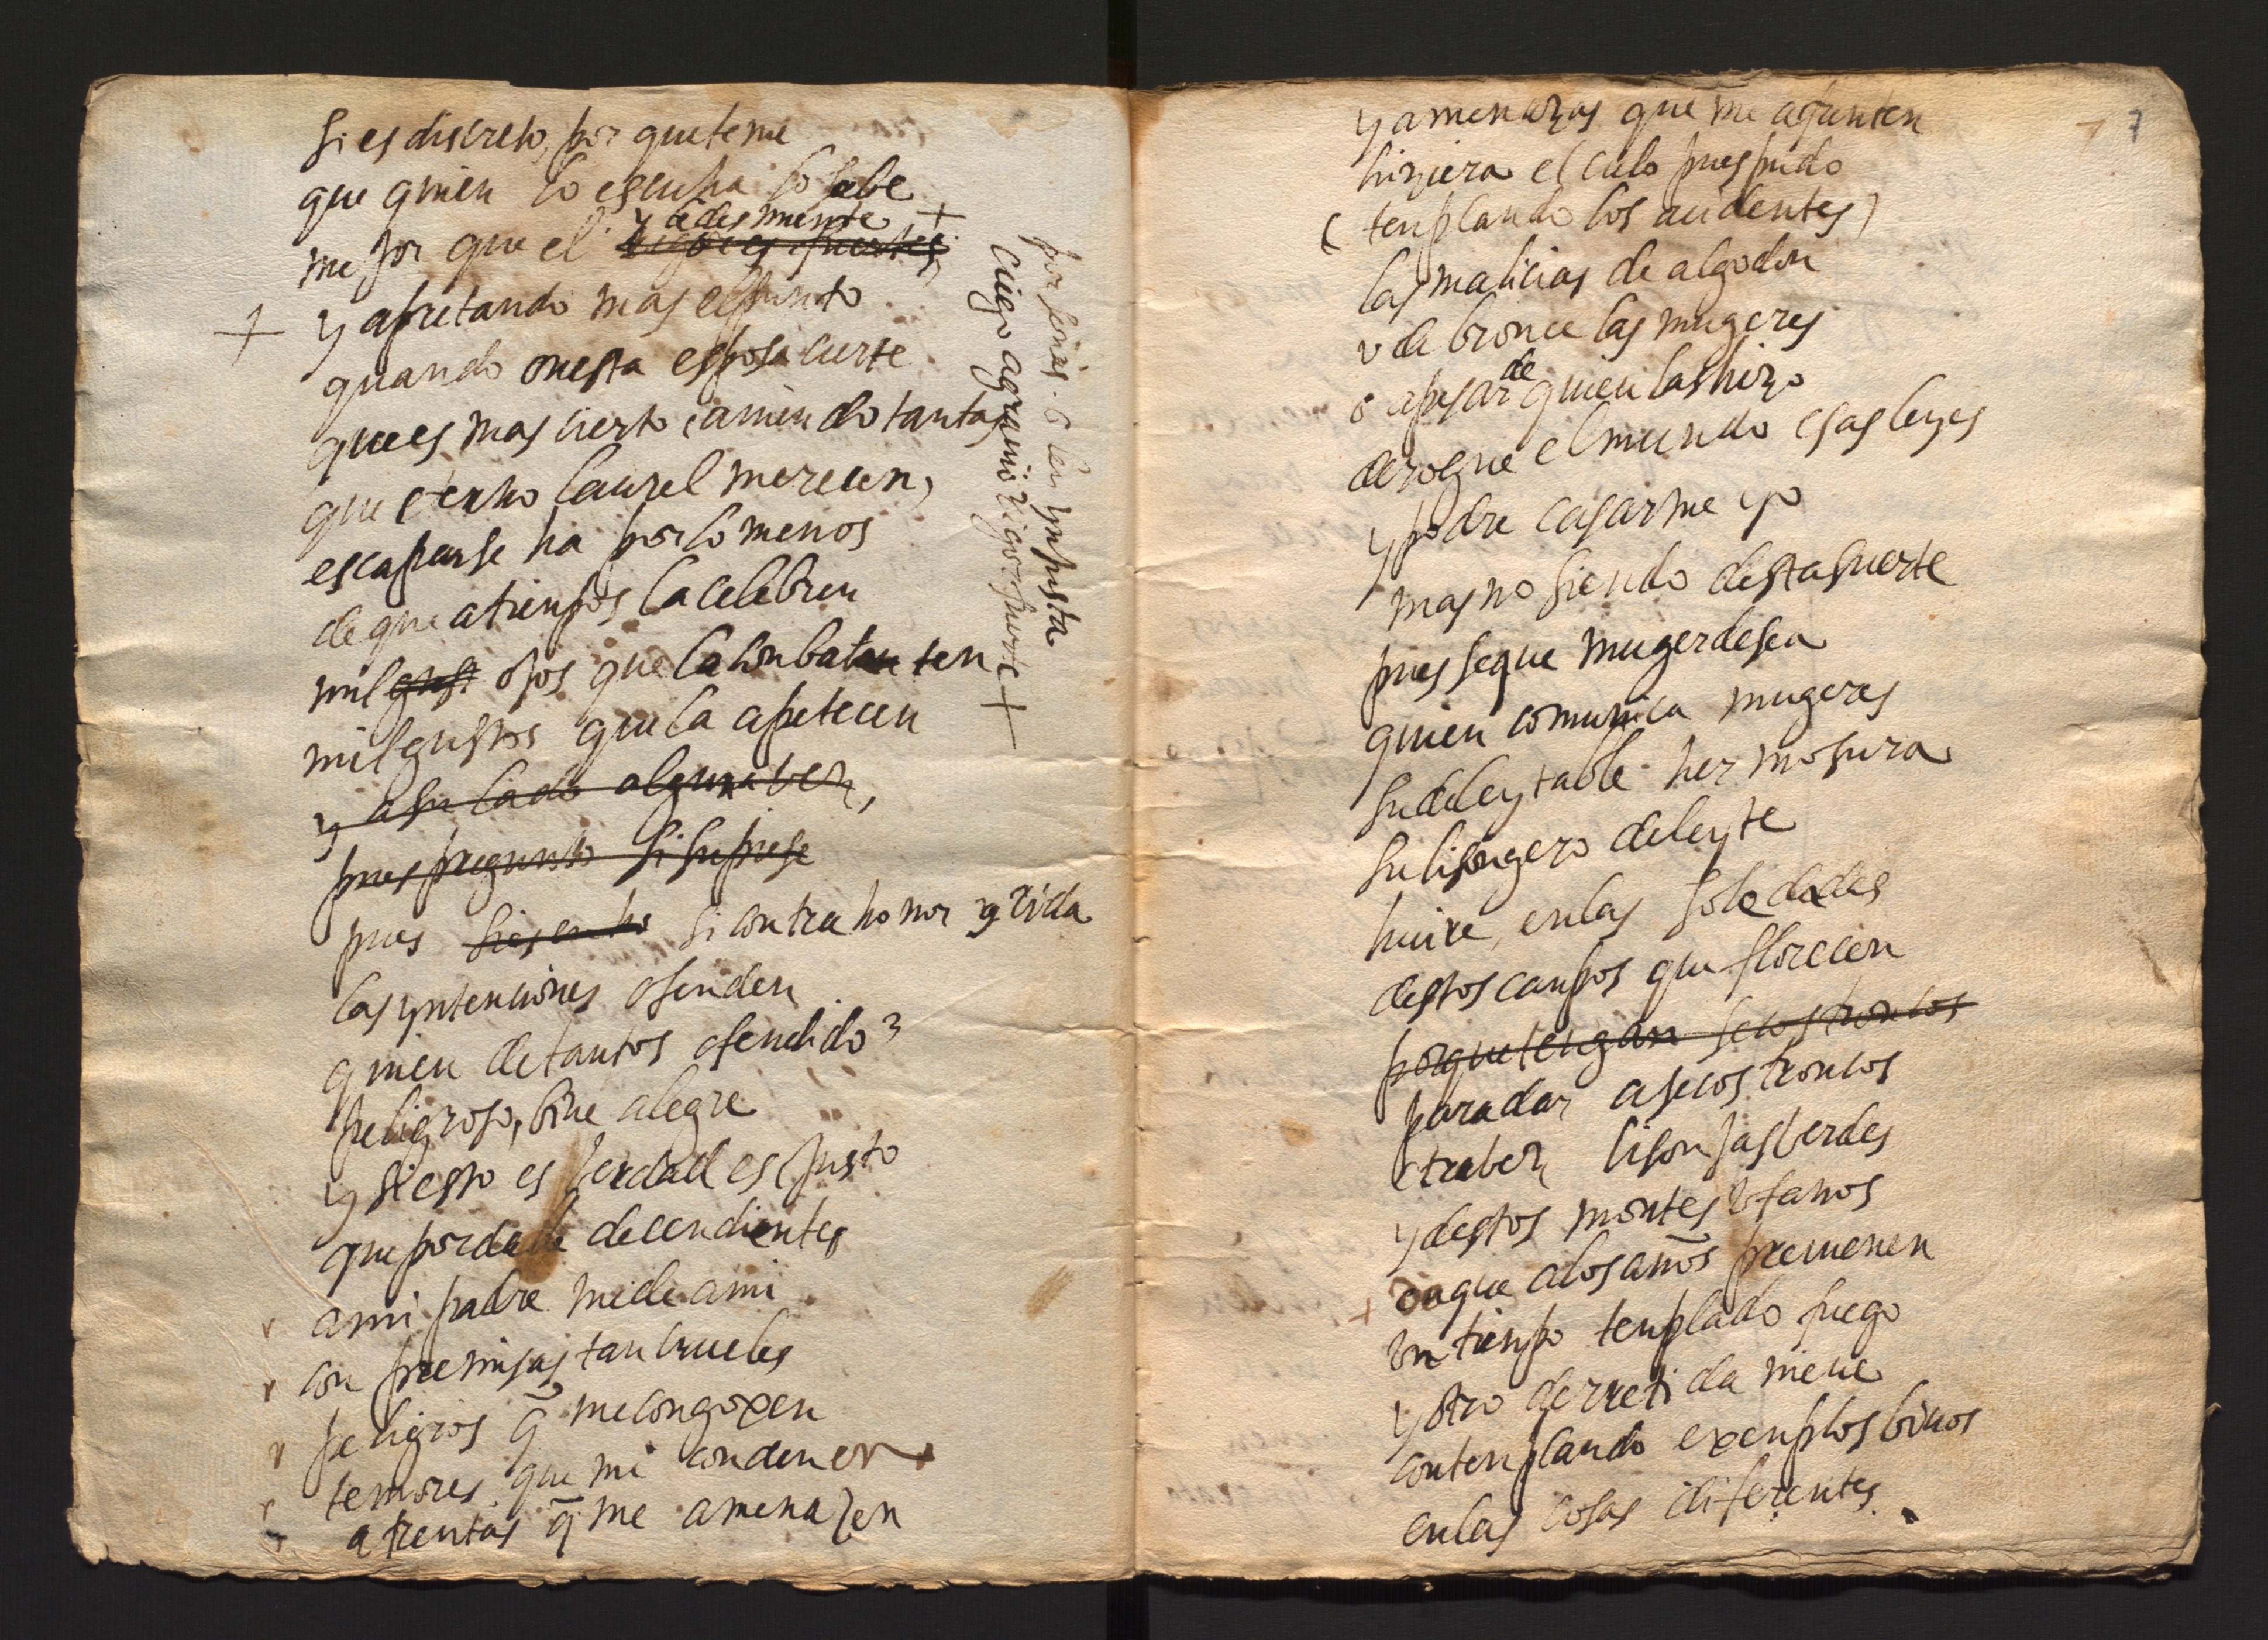 si es discreto, por que teme
que quien lo escucha lo sabe
mejor que el y le desmiente +
rigores fuertes
+ y apretando mas el punto
quando onesta esposa acierte
que es mas cierto, aviendo tantas
que eterno laurel merecen,
escaparse ha por lo menos
de que a tienpos la celebren
mil gust ojos que la conbaten ten
mil gustos que la apetecen
y a su lado alguna vez,
pues pregunto si supiese
pues si contra honor y vida
las yntenciones ofenden
quien de tantos ofendido
peligroso, bive alegre
y si esto es verdad es justo
que por dalle decendientes
a mi padre me de a mi
con premisas tan crueles
peligros q̃ me congoxen
temores que mi condenen
afrentas q̃ me amenazen
por leves. o ley ynjusta
ciego agravio rigor fuerte +
7
y amenazas que me afrenten
hiziera el cielo pues pudo
(templando los acidentes)
las malicias de algodon
v de bronce las mugeres
o a pesar de quien las hizo
derogue el mundo esas leyes
y podre casarme yo
mas no siendo desta suerte
pues se que muger desea
quien comunica mugeres
su deleytable hermosura
su lisongero deleyte
huire, en las soledades
destos canpos que florecen
porque tengan secos troncos
para dar a secos troncos
otra bez lisonjas berdes
y destos montes vfanos
+ en que a los años previenen
vn tienpo templado fuego
y otro derretida nieve
contenplando exenplos bivos
en las cosas diferentes.